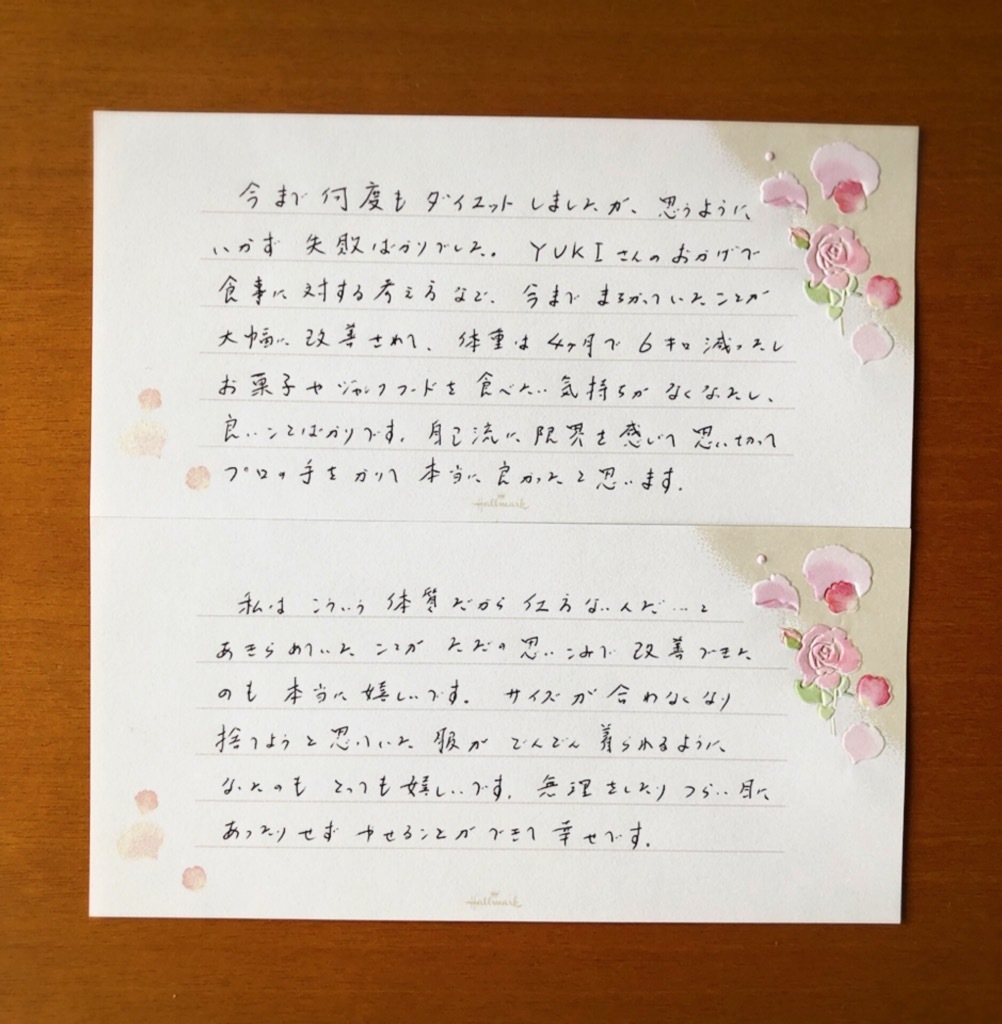 今まで何度もダイエットしましたが、思うように
いかず失敗ばかりでした。YUKIさんのおかげで
食事に対する考え方など、今までまちがっていたことが
大幅に改善されて、体重は4ヶ月で6キロ減ったし
お菓子やジャンクフードを食べたい気持ちがなくなったし、
良いことばかりです。自己流に限界を感じて思い切って
プロの手をかりて本当に良かったと思います。
Hallmark
私はこういう体質だから仕方ないんだ…と
あきらめていたことがただの思いこみで改善できた
のも本当に嬉しいです。サイズが合わなくなり
捨てようと思っていた服がどんどん着られるように
なったのもとっても嬉しいです。無理をしたりつらい目に
あったりせずやせることができて幸せです。
Hallmark